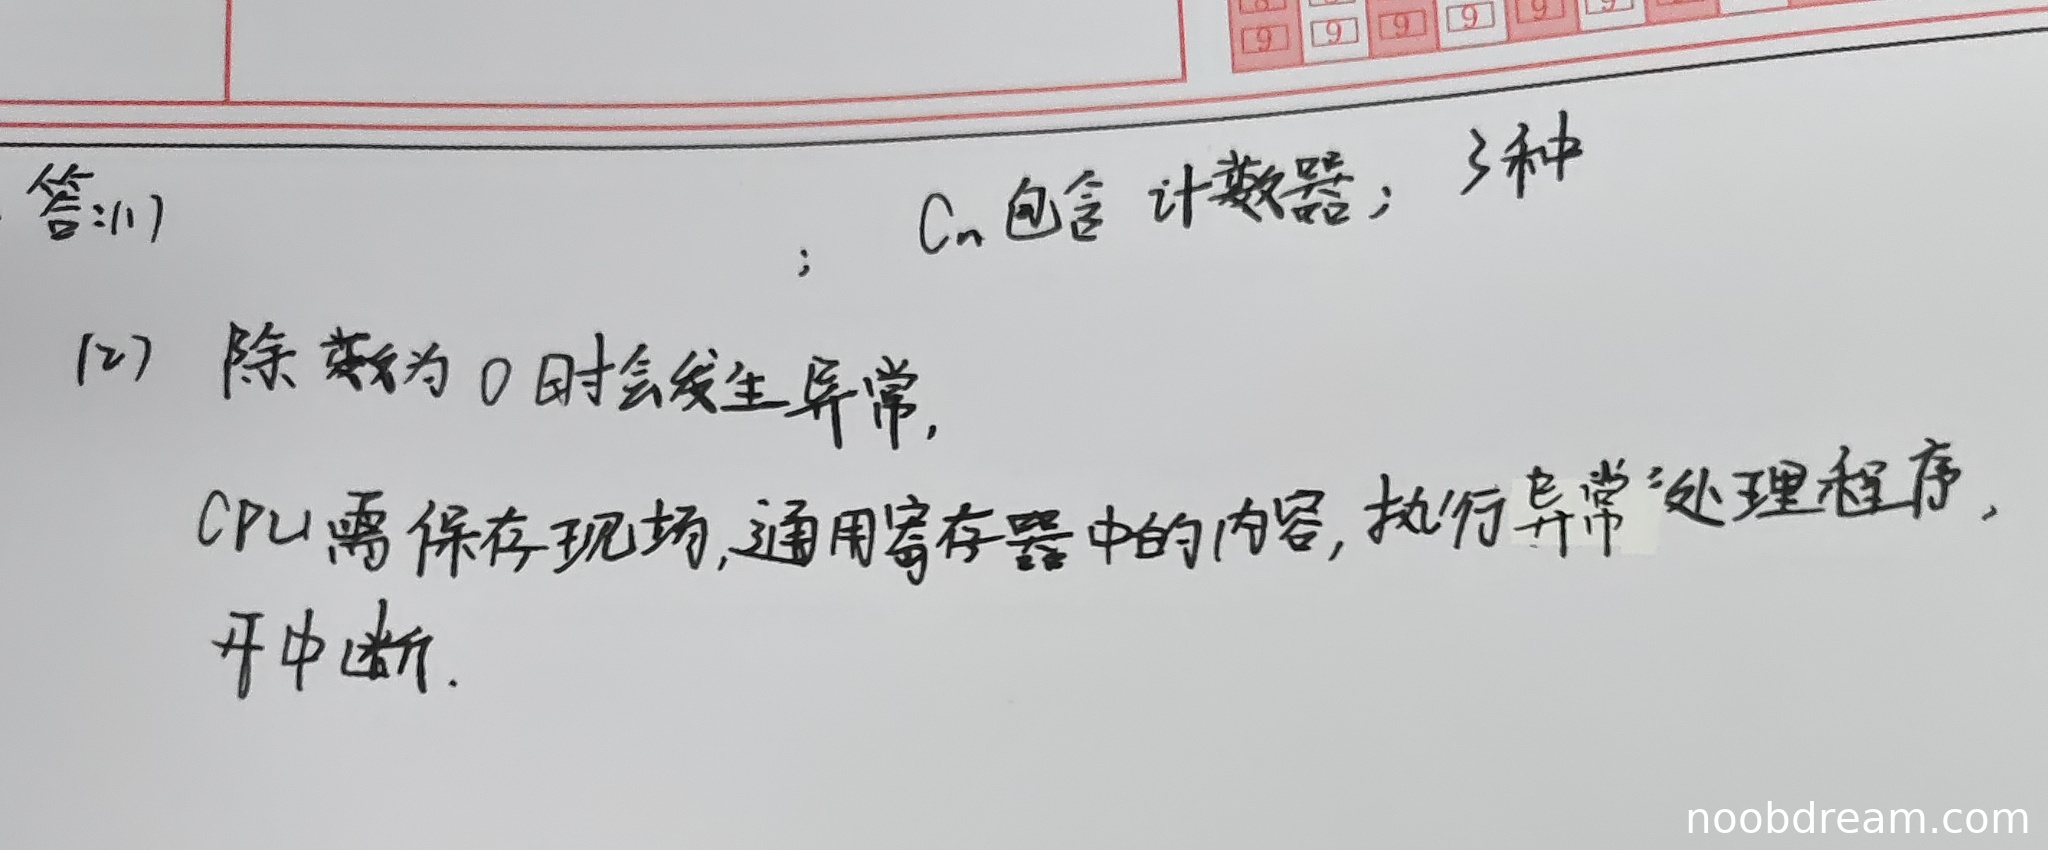 9 9 9 9 9 9
答:(1) ; Cn包含 计数器; 3种
(2) 除数为0时会发生异常,
CPU需保存现场,通用寄存器中的内容,执行异常处理程序,
开中断.
noobdream.com